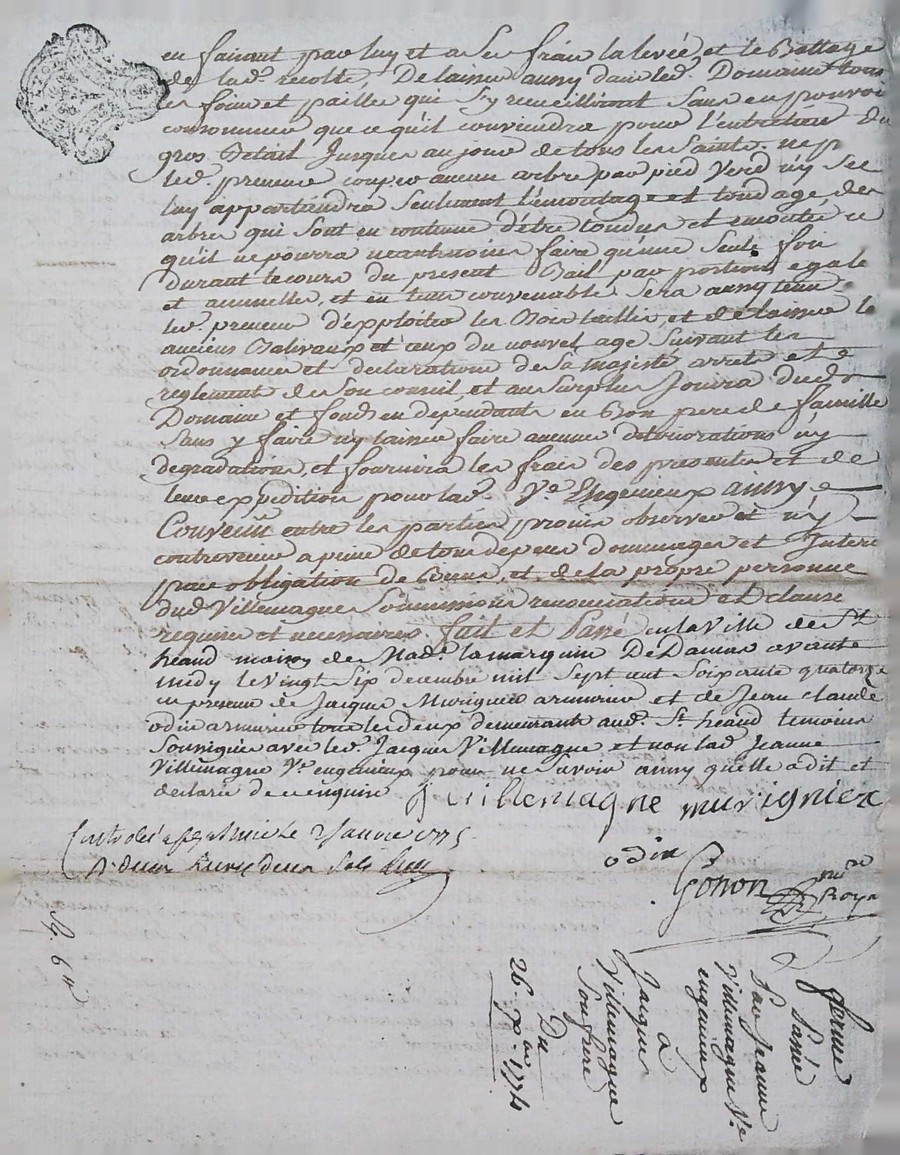 en faisant par luy et a ses frais la levée et le Battage
de lad. recolte, De laisser aussy dans led. Domaine tous
les foins et pailles qui s'y recueilliront sans en pouvoir
consommer que ce qu'il conviendra pour l'entretien du
gros Betail Jusques au jour de tous les Saints. ne p
led. preneur couper aucun arbre par pied Verd n'y sec
luy appartiendra seulement l'emontage et tondage, des
arbres qui sont en coutume d'être tondus et emontés ce
qu'il ne pourra neantmoins faire qu'une seule fois
durant le cours du present Bail par portions egale
et annuelles, et en tems convenable sera aussy tenu
led. preneur d'exploiter les Bois taillis, et de laisser le
anciens Balivaux et ceux du nouvel age suivant les
ordonnances et declarations de sa majesté arrets et
reglement de son conseil, et au surplus Jouira dud.
Domaine et fonds en dependants en Bon pere de famille
sans y faire n'y laisser faire aucunes deteriorations n'y
degradations, et fournira les frais des presentes et de
leur expedition pour lad. Ve Engenieux ainsy
Convenu entre les parties promis observer et n'y
contrevenir a peine de tous depens dommages et Interé
par obligation de Biens, et de la propre personne
dud Villemagne soumissions renonciations et clauses
requises et necessaires fait et Passé en la Ville de St
heand maison de Mad. la marquise De Damas avant
midy le vingt six decembre mil sept cent soixante quatorze
en presence de Jacques Murigneu armurier et de Jean claude
odin armurier tous les deux demeurants aud. St heand temoins
soussignes avec led. Jacques Villemagne et non lad. Jeanne
Villemagne Ve engenieux pour ne savoir ainsy quelle a dit et
declaré de ce enquise J villemagne murigniex
Controlé a le 2 Janvie 1775
R. deux Livres deux sols
odin
Gonon nre Royal
Sg. 6 d
ferme
Passée
Par Jeanne
Villemagne Ve
engenieux
à
Jacques
Villemagne
Son frere
Du
26. Xbre 1774